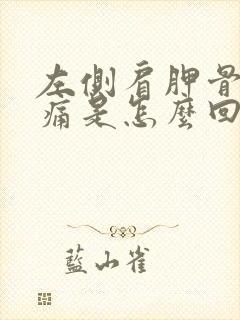 左側肩胛骨
痛是怎麼回
藍山雀